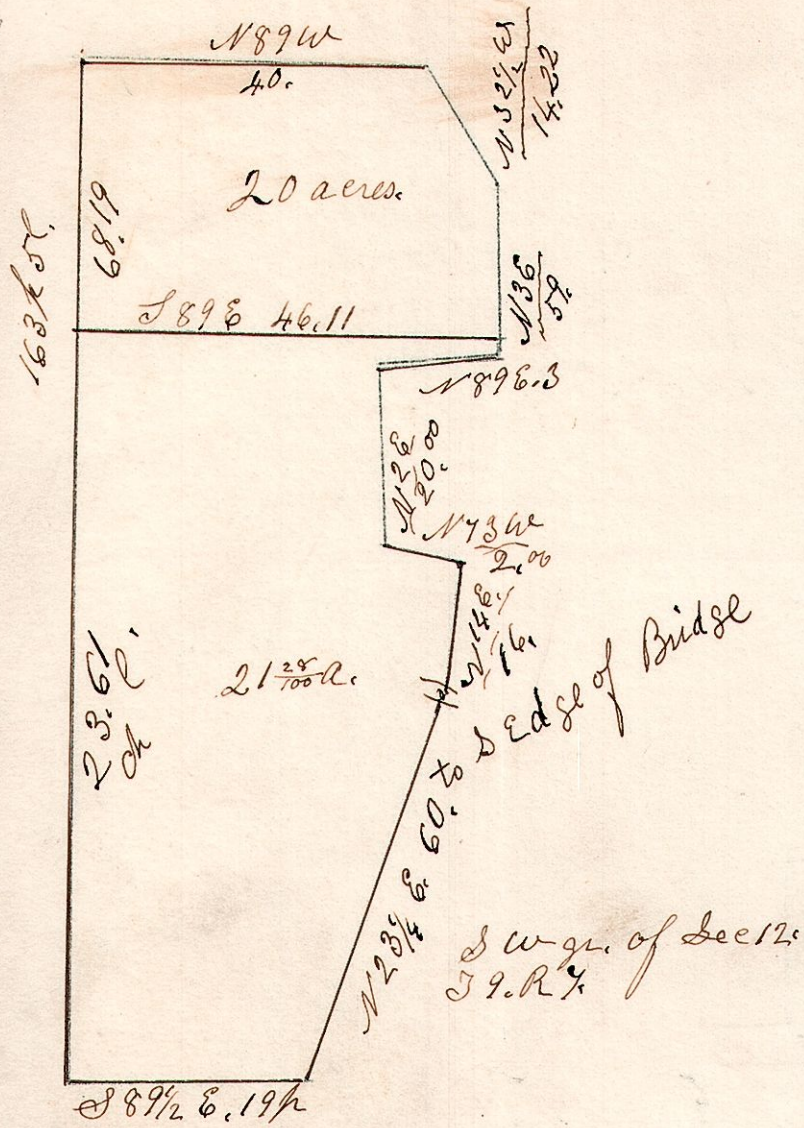 N 89 W
40.
N 32 1/2 W
14.22
20 acres.
68.19
163 p 5 l.
S 89 E 46.11
N 3 E
59.
N 89 E. 3
N 2 E
20.00
N 73 W
2.00
N 14 E
16.
21 28/100 a.
23.61
ch l.
N 23 1/4 E. 60. to S Edge of Bridge
S W qr. of Sec 12.
T 9. R 7.
S 89 1/2 E. 19 p